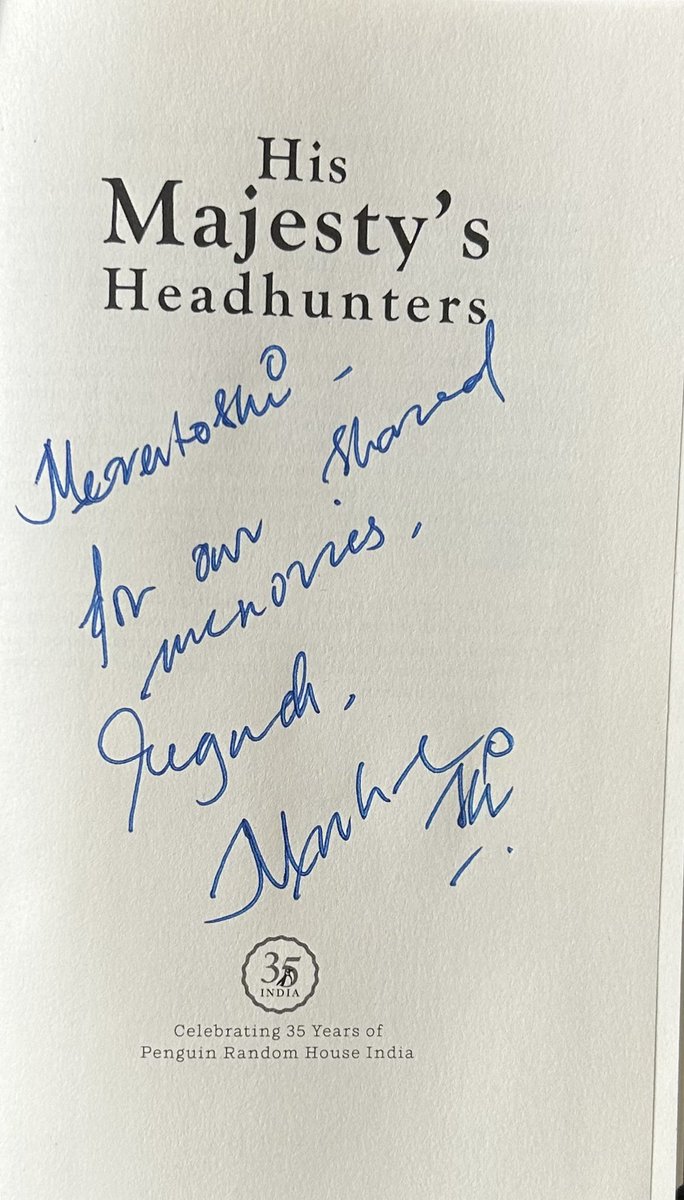 His
Majesty's
Headhunters
Merentoshi –
for our shared
memories.
35
INDIA
Celebrating 35 Years of
Penguin Random House India